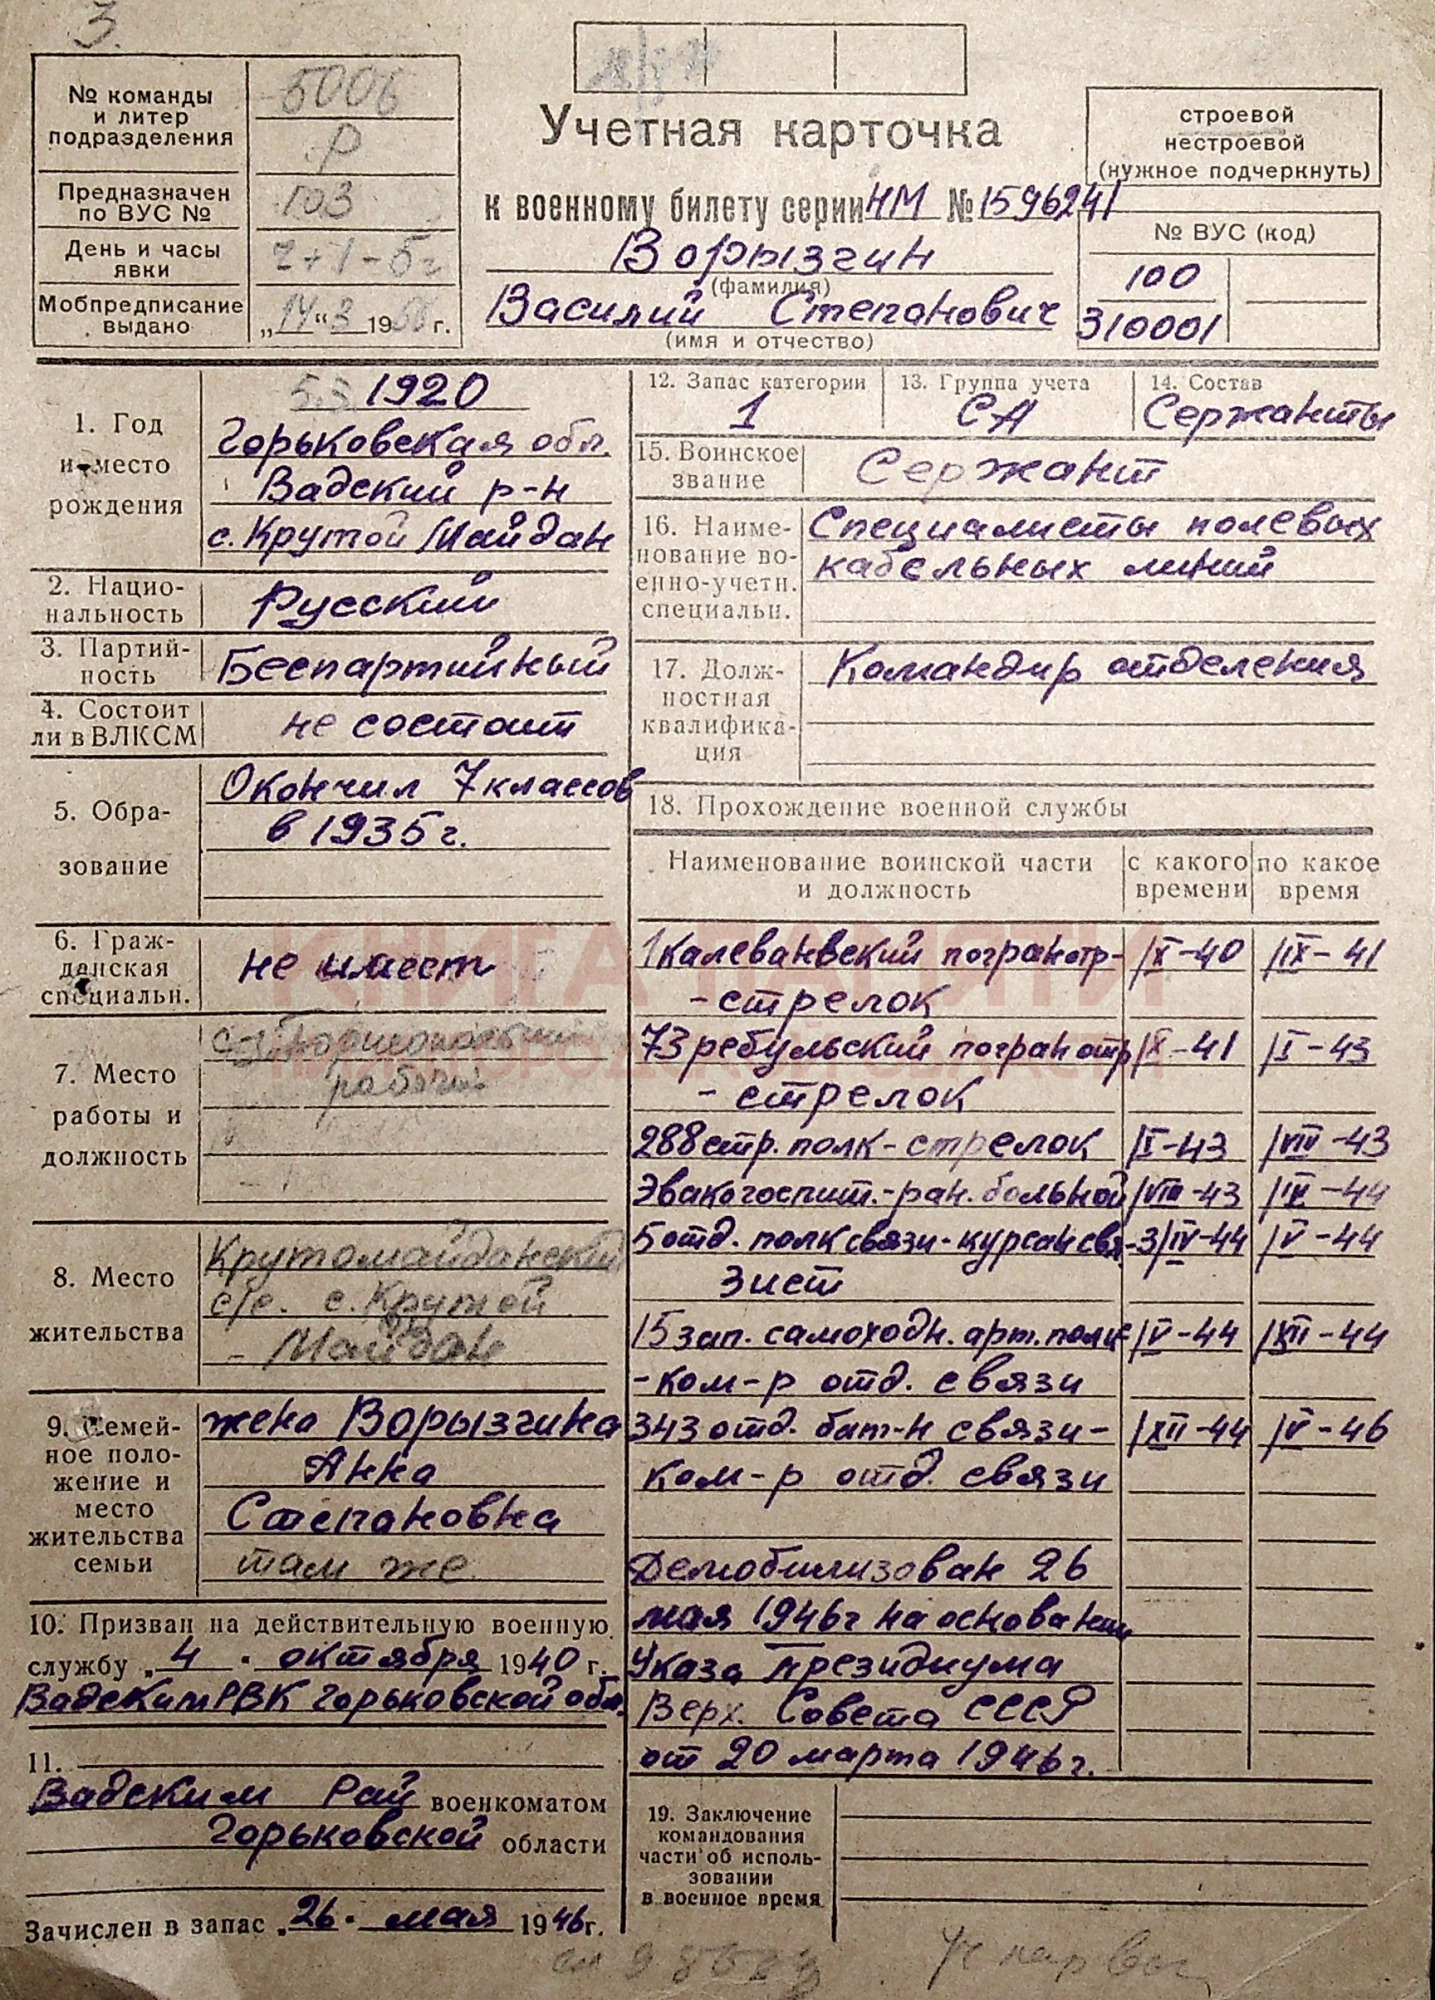 3.
№ команды
и литер
подразделения
5006
Р
Предназначен
по ВУС №
103
День и часы
явки
2+1-5г
Мобпредписание
выдано
„14“ 3 1956 г.
Учетная карточка
к военному билету серии НМ № 1596241
Ворызгин
(фамилия)
Василий Степанович
(имя и отчество)
строевой
нестроевой
(нужное подчеркнуть)
№ ВУС (код)
100
310001
1. Год
и место
рождения
5.3. 1920
Горьковская обл.
Вадский р-н
с. Крутой Майдан
2. Нацио-
нальность
Русский
3. Партий-
ность
Беспартийный
4. Состоит
ли в ВЛКСМ
не состоит
5. Обра-
зование
Окончил 7 классов
в 1935 г.
6. Граж-
данская
специальн.
не имеет
7. Место
работы и
должность
рабочий
8. Место
жительства
Крутомайданский
с/с. с. Крутой
- Майдан
9. Семей-
ное поло-
жение и
место
жительства
семьи
жена Ворызгина
Анна
Степановна
там же
10. Призван на действительную военную
службу „4“ октября 1940 г.
Вадским РВК Горьковской обл.
11.
Вадским Рай военкоматом
Горьковской области
Зачислен в запас „26“ мая 1946 г.
12. Запас категории
1
13. Группа учета
СА
14. Состав
Сержанты
15. Воинское
звание
Сержант
16. Наиме-
нование во-
енно-учетн.
специальн.
Специалисты полевых
кабельных линий
17. Долж-
ностная
квалифика-
ция
Командир отделения
18. Прохождение военной службы
Наименование воинской части
и должность
с какого
времени
по какое
время
1 Калевановский погранотр- X-40 IX-41
- стрелок
73 ребульский погранотр X-41 I-43
- стрелок
288 стр. полк - стрелок I-43 VIII-43
Эвакогоспит.-ран. больной VIII-43 IV-44
5 отд. полк связи - курсан свя- 3/IV-44 V-44
зист
15 зап. самоходн. арт. полк V-44 XII-44
- ком-р отд. связи
343 отд. бат-н связи - XII-44 V-46
ком-р отд. связи
Демобилизован 26
мая 1946г на основании
Указа Президиума
Верх. Совета СССР
от 20 марта 1946 г.
19. Заключение
командования
части об исполь-
зовании
в военное время
КНИГА ПАМЯТИ
НИЖЕГОРОДСКОЙ ОБЛАСТИ